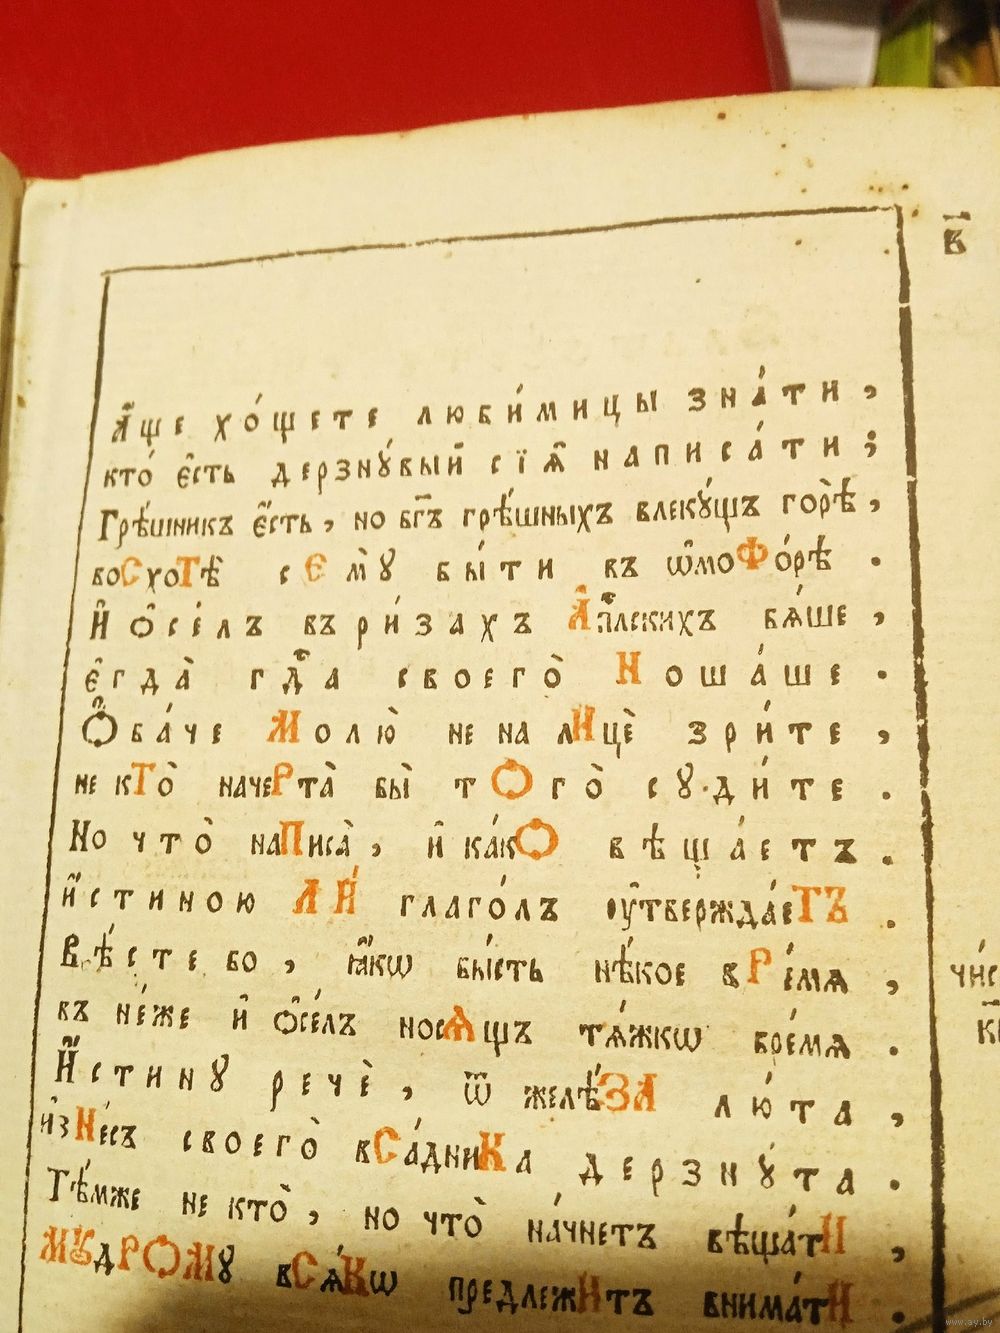 в҃
А҆́ще хо́щете люби́мицы зна́ти,
кто́ є҆́сть дерзнꙋ́вый сїѧ҆̀ написа́ти;
Грѣ́шникъ є҆́сть, но бг҃ъ грѣ́шныхъ влекꙋ́щъ горѣ̀,
восхотѣ̀ семꙋ̀ бы́ти въ ѡ҆мофо́рѣ.
И҆ о҆се́лъ въ ри́захъ а҆пⷭ҇лскихъ бѧ́ше,
є҆гда̀ гдⷭ҇а своего̀ ноша́ше.
Ѻ҆ба́че молю̀ не на лицѐ зри́те,
не кто̀ начерта̀ бы̀ тѻго̀ сꙋди́те.
Но что̀ написа̀, и҆ ка́кѻ вѣща́етъ.
и҆́стиною ли́ глаго́лъ ᲂу҆тверждае́тъ.
Вѣ́сте бо, ꙗ҆́кѡ бы́сть нѣ́кое вре́мѧ,
въ не́же и҆ о҆се́лъ носѧ́щъ тѧ́жкѡ бре́мѧ.
И҆́стинꙋ речѐ, ѿ желѣ́за лю́та,
и҆зне́съ своего̀ вса́дника дерзнꙋ́та.
Тѣ́мже не кто̀, но что̀ на́чнетъ вѣща́ти,
мꙋдрѻмꙋ всѧ́кѡ предлежи́тъ внима́ти.
чи́с
www.ay.by